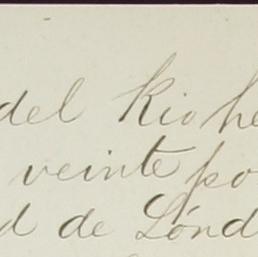 del Rio he
veinte po
d de Lónd